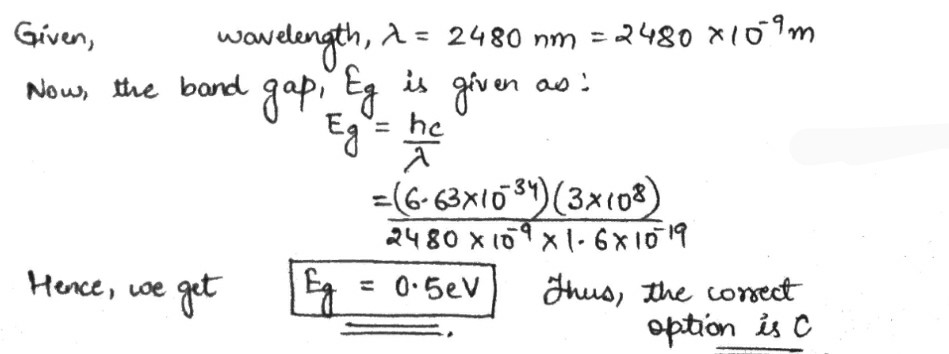 Given, wavelength, λ = 2480 nm = 2480 × 10⁻⁹ m
Now, the band gap, Eg is given as :
Eg = hc
λ
= (6.63×10⁻³⁴) (3×10⁸)
2480 × 10⁻⁹ × 1.6 × 10⁻¹⁹
Hence, we get Eg = 0.5eV Thus, the correct
option is C